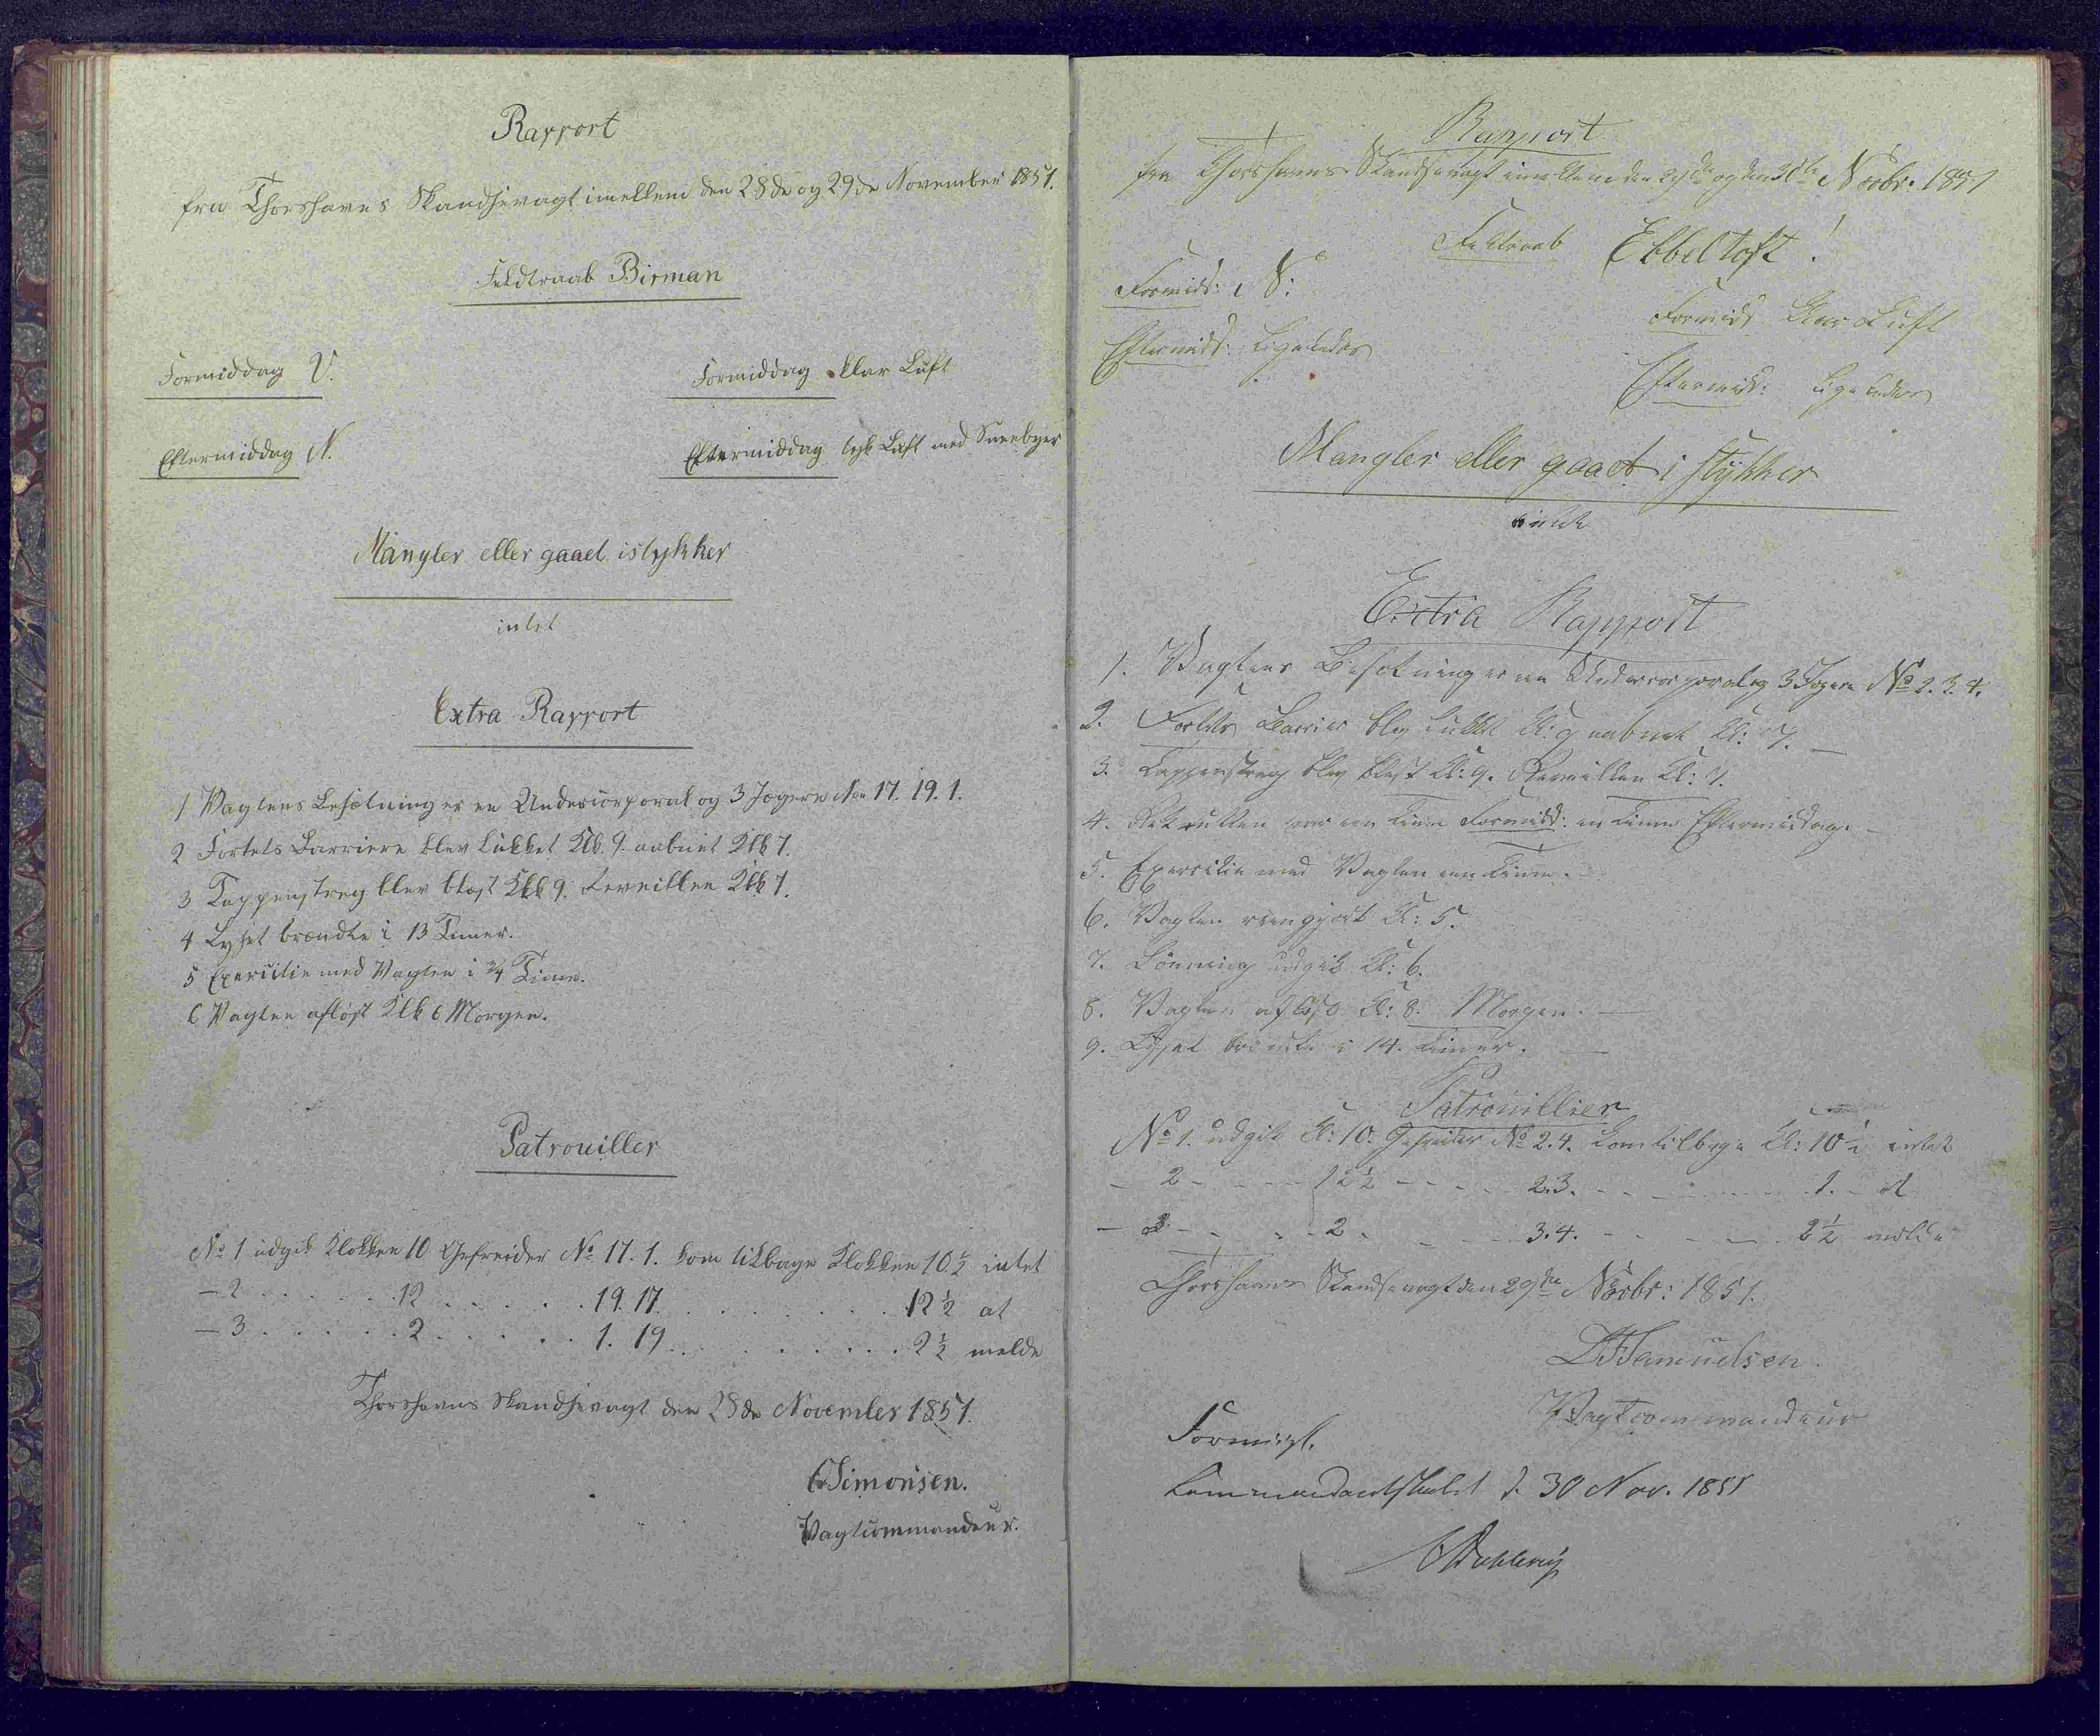 Rapport
fra Thorshavns Skandsevagt imellem den 28de og 29de November 1851.
Feldtraab Birman
Formiddag V.
Formiddag klar Luft
Eftermiddag N.
Eftermiddag tyk Luft med Sneebyer
Mangler eller gaaet istykker
intet
Extra Rapport
1 Vagtens Besætning er en Undercorporal og 3 Jægere No 17. 19. 1.
2 Fortets Barriere blev lukket Klk. 9. aabnet Klk 7.
3 Tappenstreg blev blæst Klk 9. Reveillen Klk 7.
4 Lyset brændte i 13 Timer.
5 Exercitie med Vagten i 3/4 Time.
6 Vagten afløst Klk 6 Morgen.
Patrouiller
No 1 udgik Klokken 10 Gefreider No 17. 1. kom tilbage Klokken 10½ intet
— 2 . . . . . 12 . . . . . 19. 17. . . . . . . . . 12½ at
— 3 . . . . . 2 . . . . . 1. 19 . . . . . . . . . 2½ melde
Thorshavns Skandsevagt den 28de November 1851.
Simonsen.
Vagtcommandeur.
Rapport
fra Thorshavns Skandsevagt imellem den 29de og den 30te Novbr. 1851
Feltraab Ebbeltoft!
Formidd: N:
Formidd Klar Luft
Eftermidd: Ligeledes
Eftermidd: Ligeledes
Mangler eller gaaet i stykker
intet
Extra Rapport
1. Vagtens Besetning er en Undercorporal og 3 Jægere No 2. 3. 4.
2. Fortets Barrier blev lukket Kl: 9 aabnet Kl: 7. —
3. Tappenstreg blev blæst Kl: 9. Reveillen Kl: 7.
4. var een Time Formidd: en Time Eftermiddag. —
5. Exercitie med Vagten een Time. —
6. Vagten reengjort Kl: 5.
7. udgik Kl: 6.
8. Vagten afløst Kl: 8. Morgen. —
9. Lyset brændte i 14. Timer. —
Patrouillier
No 1. udgik Kl: 10. Gefreider No 2. 4. kom tilbage Kl: 10½ intet
— 2 - - - - 12½ - - - - 2.3. - - - - - - 1. - at
— 3 - - - - 2 - - - - 3.4. - - - - - 2½ melde
Thorshavns Skandsevagt den 29de Novbr: 1851.
Samuelsen.
Vagtcommandeur
Formigt.
Commandantskabet d. 30 Nov. 1851
Dahlerup